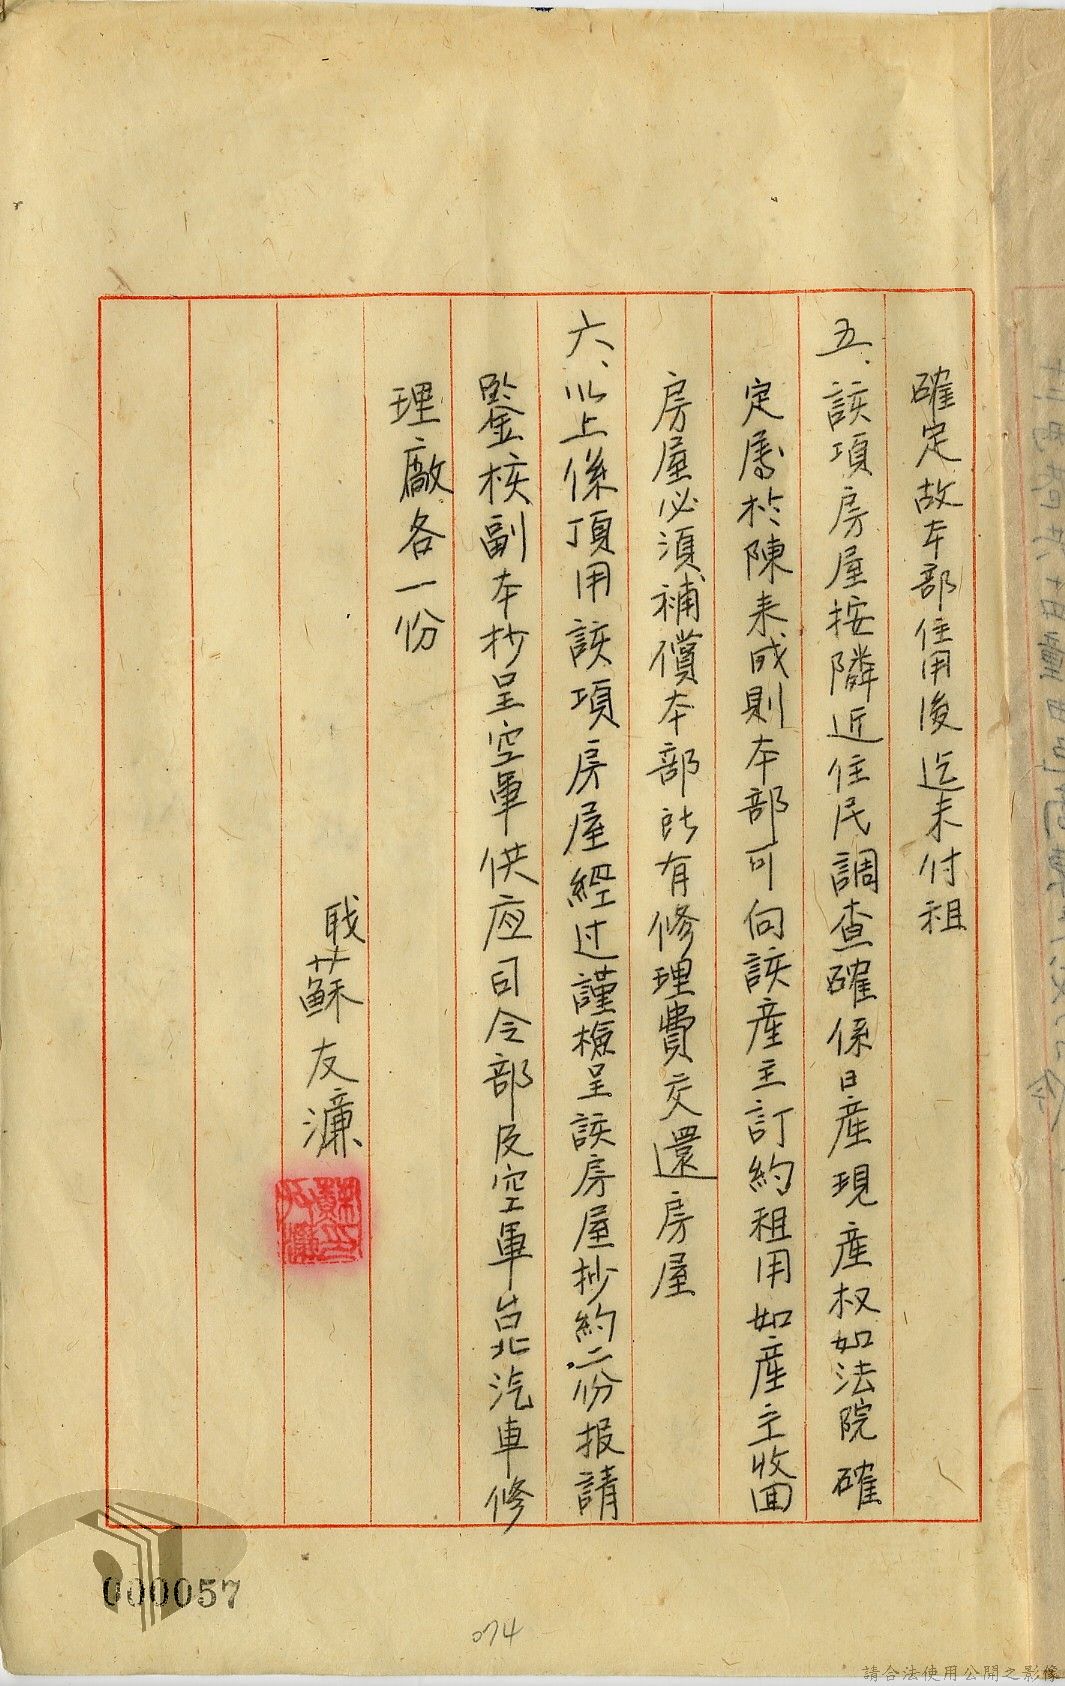 確定故本部住用後迄未付租
五、該項房屋按隣近住民調查確係日産現産权如法院確
定屬於陳來成則本部可向該産主訂約租用如産主收回
房屋必須補償本部所有修理費交還房屋
六、以上係頂用該項房屋經过謹檢呈該房屋抄約二份报請
鑒核副本抄呈空軍供应司令部及空軍台北汽車修
理廠各一份
職蘇友濂
000057
074
請合法使用公開之影像